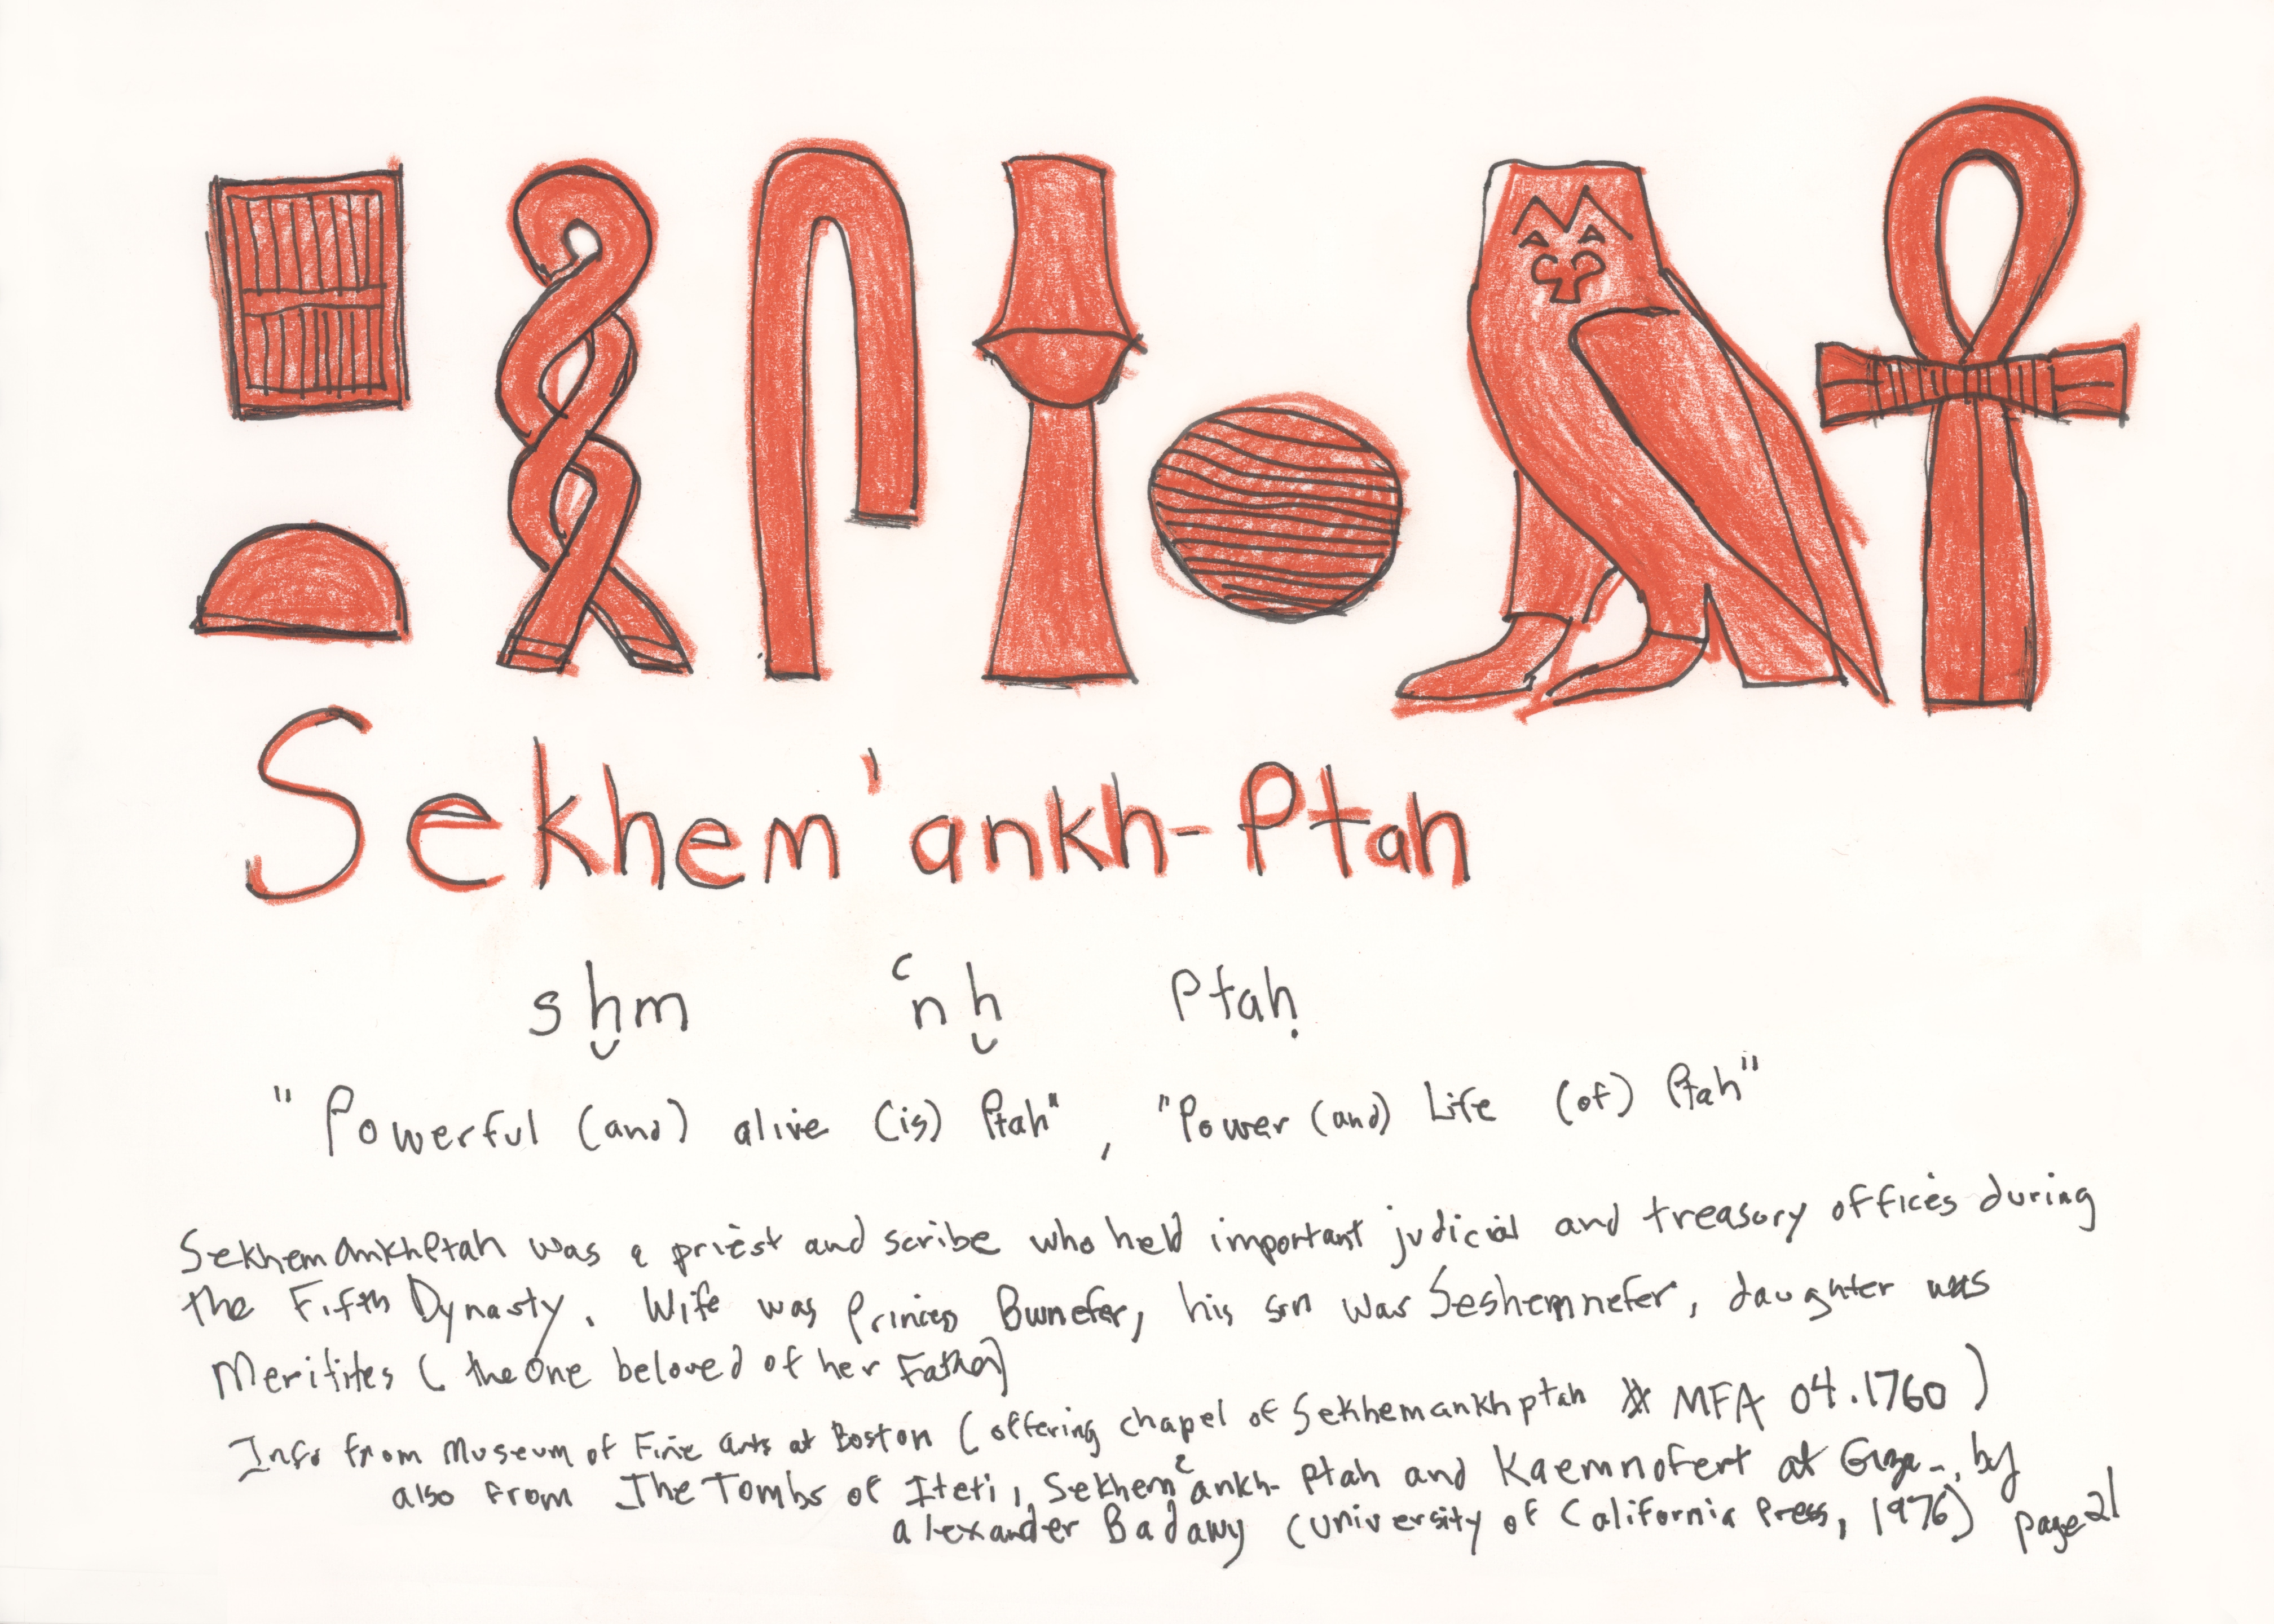 𓊪𓏏𓎛𓋴𓌂𓐍𓅓𓋹
Sekhem 'ankh-Ptah
sḫm ꜥnḫ Ptaḥ
"Powerful (and) alive (is) Ptah", "Power (and) Life (of) Ptah"
SekhemankhPtah was a priest and scribe who held important judicial and treasury offices during
the Fifth Dynasty. Wife was Princess Bunefer, his son was Seshemnefer, daughter was
Meritites (the One beloved of her Father)
Info from Museum of Fine Arts at Boston (offering chapel of Sekhemankhptah MFA 04.1760)
also from The Tombs of Iteti, Sekhemꜥankh-Ptah and Kaemnofert at Giza, by
Alexander Badawy (University of California Press, 1976) page 21